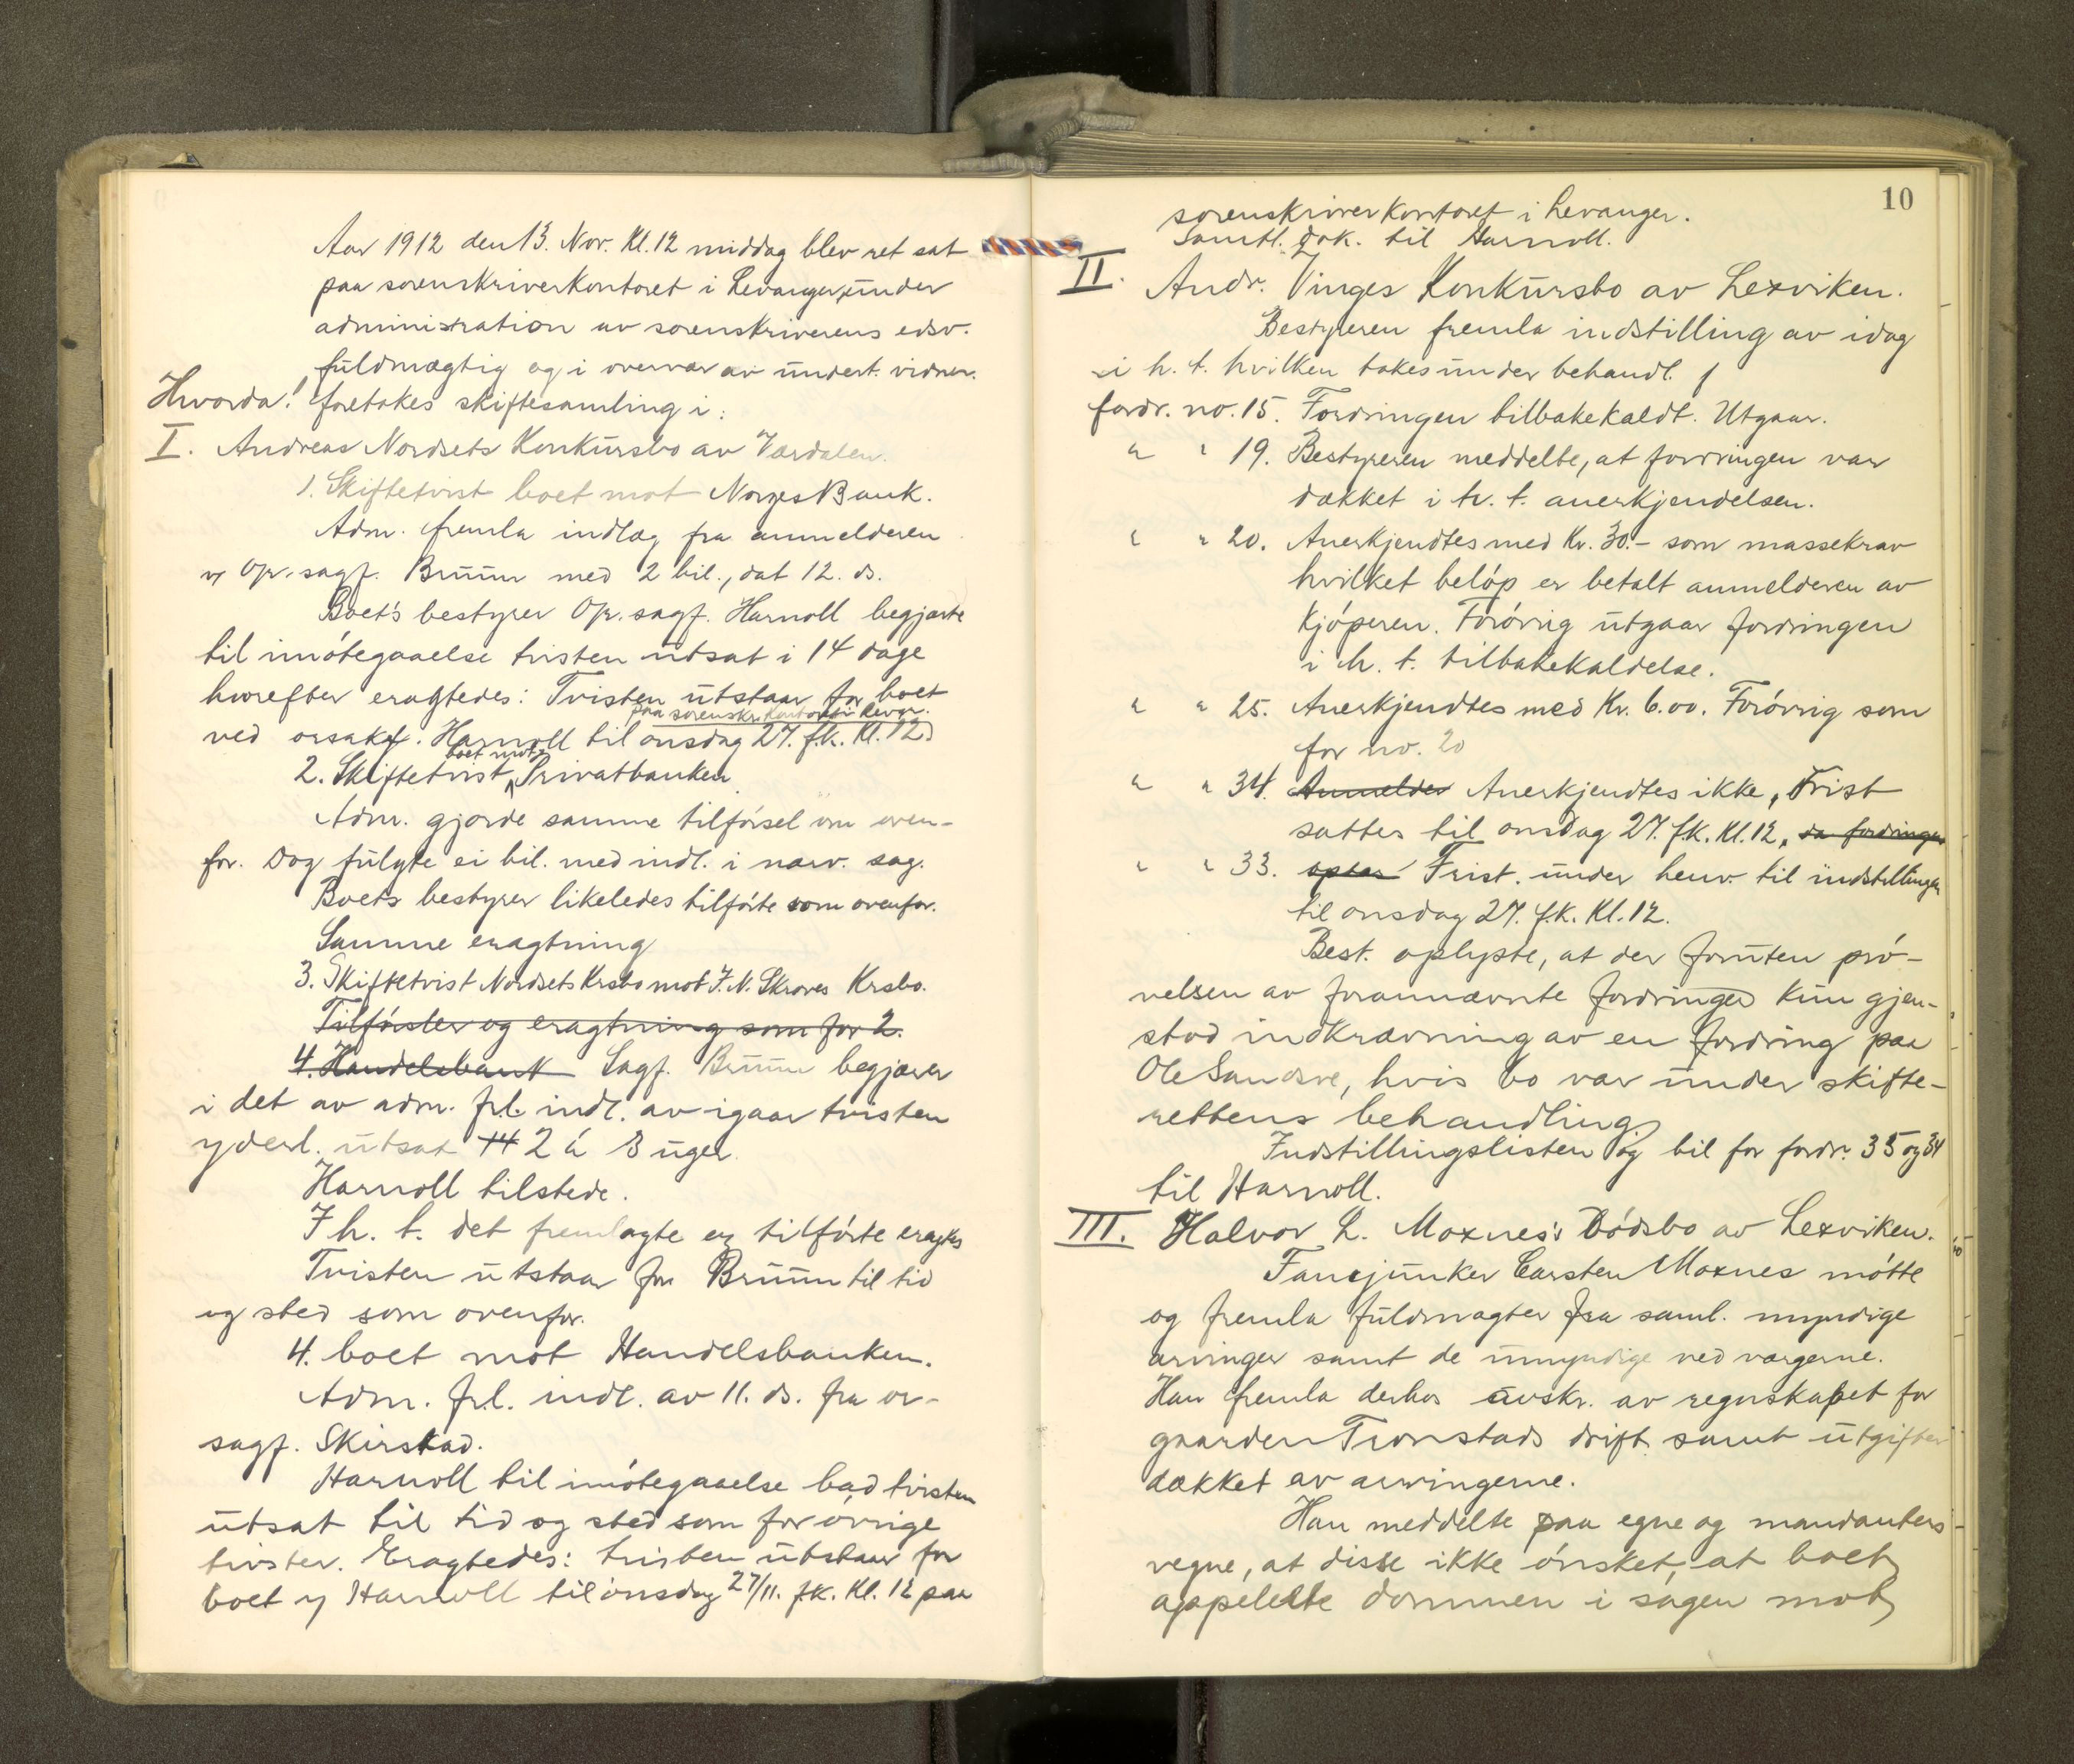 Aar 1912 den 13. Nov. Kl. 12 middag blev ret sat
paa sorenskriverkontoret i Levanger, under
administration av sorenskriverens edsv.
fuldmægtig og i overvær av undert. vidner.
Hvorda! foretokes skiftesamling i:
I. Andreas Nordsets Konkursbo av Værdalen.
1. Skiftetvist boet mot Norges Bank.
Adm. fremla indlæg fra anmelderen
v Opr.sagf. Bruun med 2 bil., dat 12. ds.
Boet's bestyrer Opr. sagf. Harnoll begjærte
til imøtegaaelse tvisten utsat i 14 dage
hvorefter eragtedes: Tvisten utstaar for boet
paa sorenskr. kontoret i Levgr.
ved orsakf. Harnoll til onsdag 27. f.k. Kl. 12.
boet mot
2. Skiftetvist Privatbanken
Adm. gjorde samme tilførsel om oven-
for. Dog fulgte ei bil. med indl. i nærv. sag.
Boets bestyrer likeledes tilførte som ovenfor.
Samme eragtning
3. Skiftetvist Nordsets Krsbo mot J. N. Skroves Krsbo.
Tilførsler og eragtning som for 2.
4. Handelsbank Sagf. Bruun begjærer
i det av adm. frl. indl. av igaar tvisten
yderl. utsat 14 2 á 3 uger
Harnoll tilstede.
I h. t. det fremlagte og tilførte eragtes
Tvisten utstaar for Bruun til tid
og sted som ovenfor.
4. boet mot Handelsbanken.
Adm. frl. indl. av 11. ds. fra or-
sagf. Skirstad.
Harnoll til imøtegaaelse bad tvisten
utsat til tid og sted som for øvrige
tvister. Eragtedes: tvisten utstaar for
boet v Harnoll til onsdag 27/11. f.k. Kl. 12 paa
10
sorenskriverkontoret i Levanger.
Samtl. dok. til Harnoll.
II. Andr. Vinges Konkursbo av Lexviken.
Bestyreren fremla indstilling av idag
i h. t. hvilken tokes under behandl.
fordr. no. 15. Fordringen tilbakekaldt. Utgaar.
" " 19. Bestyreren meddelte, at fordringen var
dækket i h. t. anerkjendelsen.
" " 20. Anerkjendtes med Kr. 30.- som massekrav
hvilket beløp er betalt anmelderen av
kjøperen. Forøvrig utgaar fordringen
i h. t. tilbakekaldelse.
" " 25. Anerkjendtes med Kr. 6.00. Forøvrig som
for no. 20
" " 34. Anmelder Anerkjendtes ikke, Frist
sattes til onsdag 27. f.k. Kl. 12, da fordringen
" " 33. Frist. under henv. til indstillingen
til onsdag 27. f.k. Kl. 12.
Best. oplyste, at der foruten prø-
velsen av forannævnte fordringer kun gjen-
stod indkrævning av en fordring paa
Ole Sandsve, hvis bo var under skifte-
rettens behandling
Indstillingslisten og bil for fordr. 35 og 34
til Harnoll.
III. Halvor L. Moxnes's Dødsbo av Lexviken.
Fanejunker Carsten Moxnes møtte
og fremla fuldmagter fra saml. myndige
arvinger samt de umyndige ved værgerne.
Han fremla derhos avskr. av regnskapet for
gaarden Tronstads drift samt utgifter
dækket av arvingerne.
Han meddelte paa egne og mandanters
vegne, at disse ikke ønsket, at boet
appelelte dommen i sagen mot